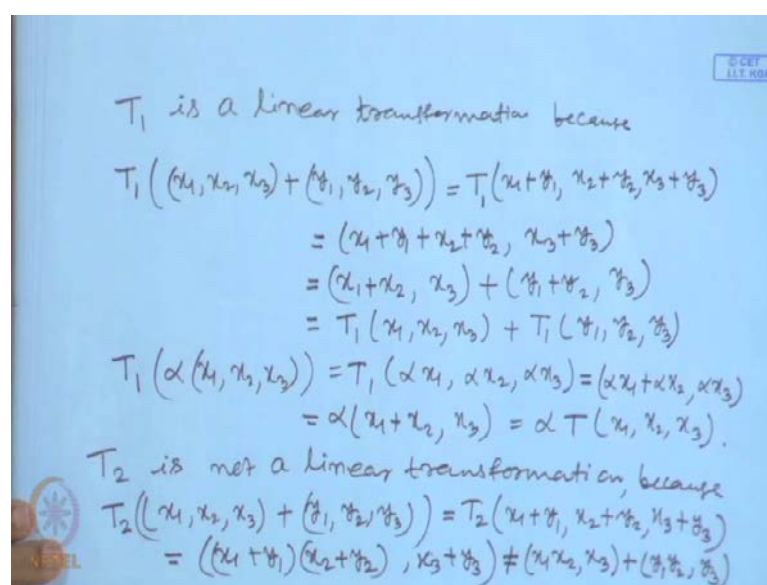 © CET
I.I.T. KGP
T₁ is a linear transformation because
T₁((x₁, x₂, x₃) + (y₁, y₂, y₃)) = T₁(x₁+y₁, x₂+y₂, x₃+y₃)
= (x₁+y₁+x₂+y₂, x₃+y₃)
= (x₁+x₂, x₃) + (y₁+y₂, y₃)
= T₁(x₁, x₂, x₃) + T₁(y₁, y₂, y₃)
T₁(α(x₁, x₂, x₃)) = T₁(αx₁, αx₂, αx₃) = (αx₁+αx₂, αx₃)
= α(x₁+x₂, x₃) = α T(x₁, x₂, x₃).
T₂ is not a linear transformation, because
T₂((x₁, x₂, x₃) + (y₁, y₂, y₃)) = T₂(x₁+y₁, x₂+y₂, x₃+y₃)
= ((x₁+y₁)(x₂+y₂), x₃+y₃) ≠ (x₁x₂, x₃) + (y₁y₂, y₃)